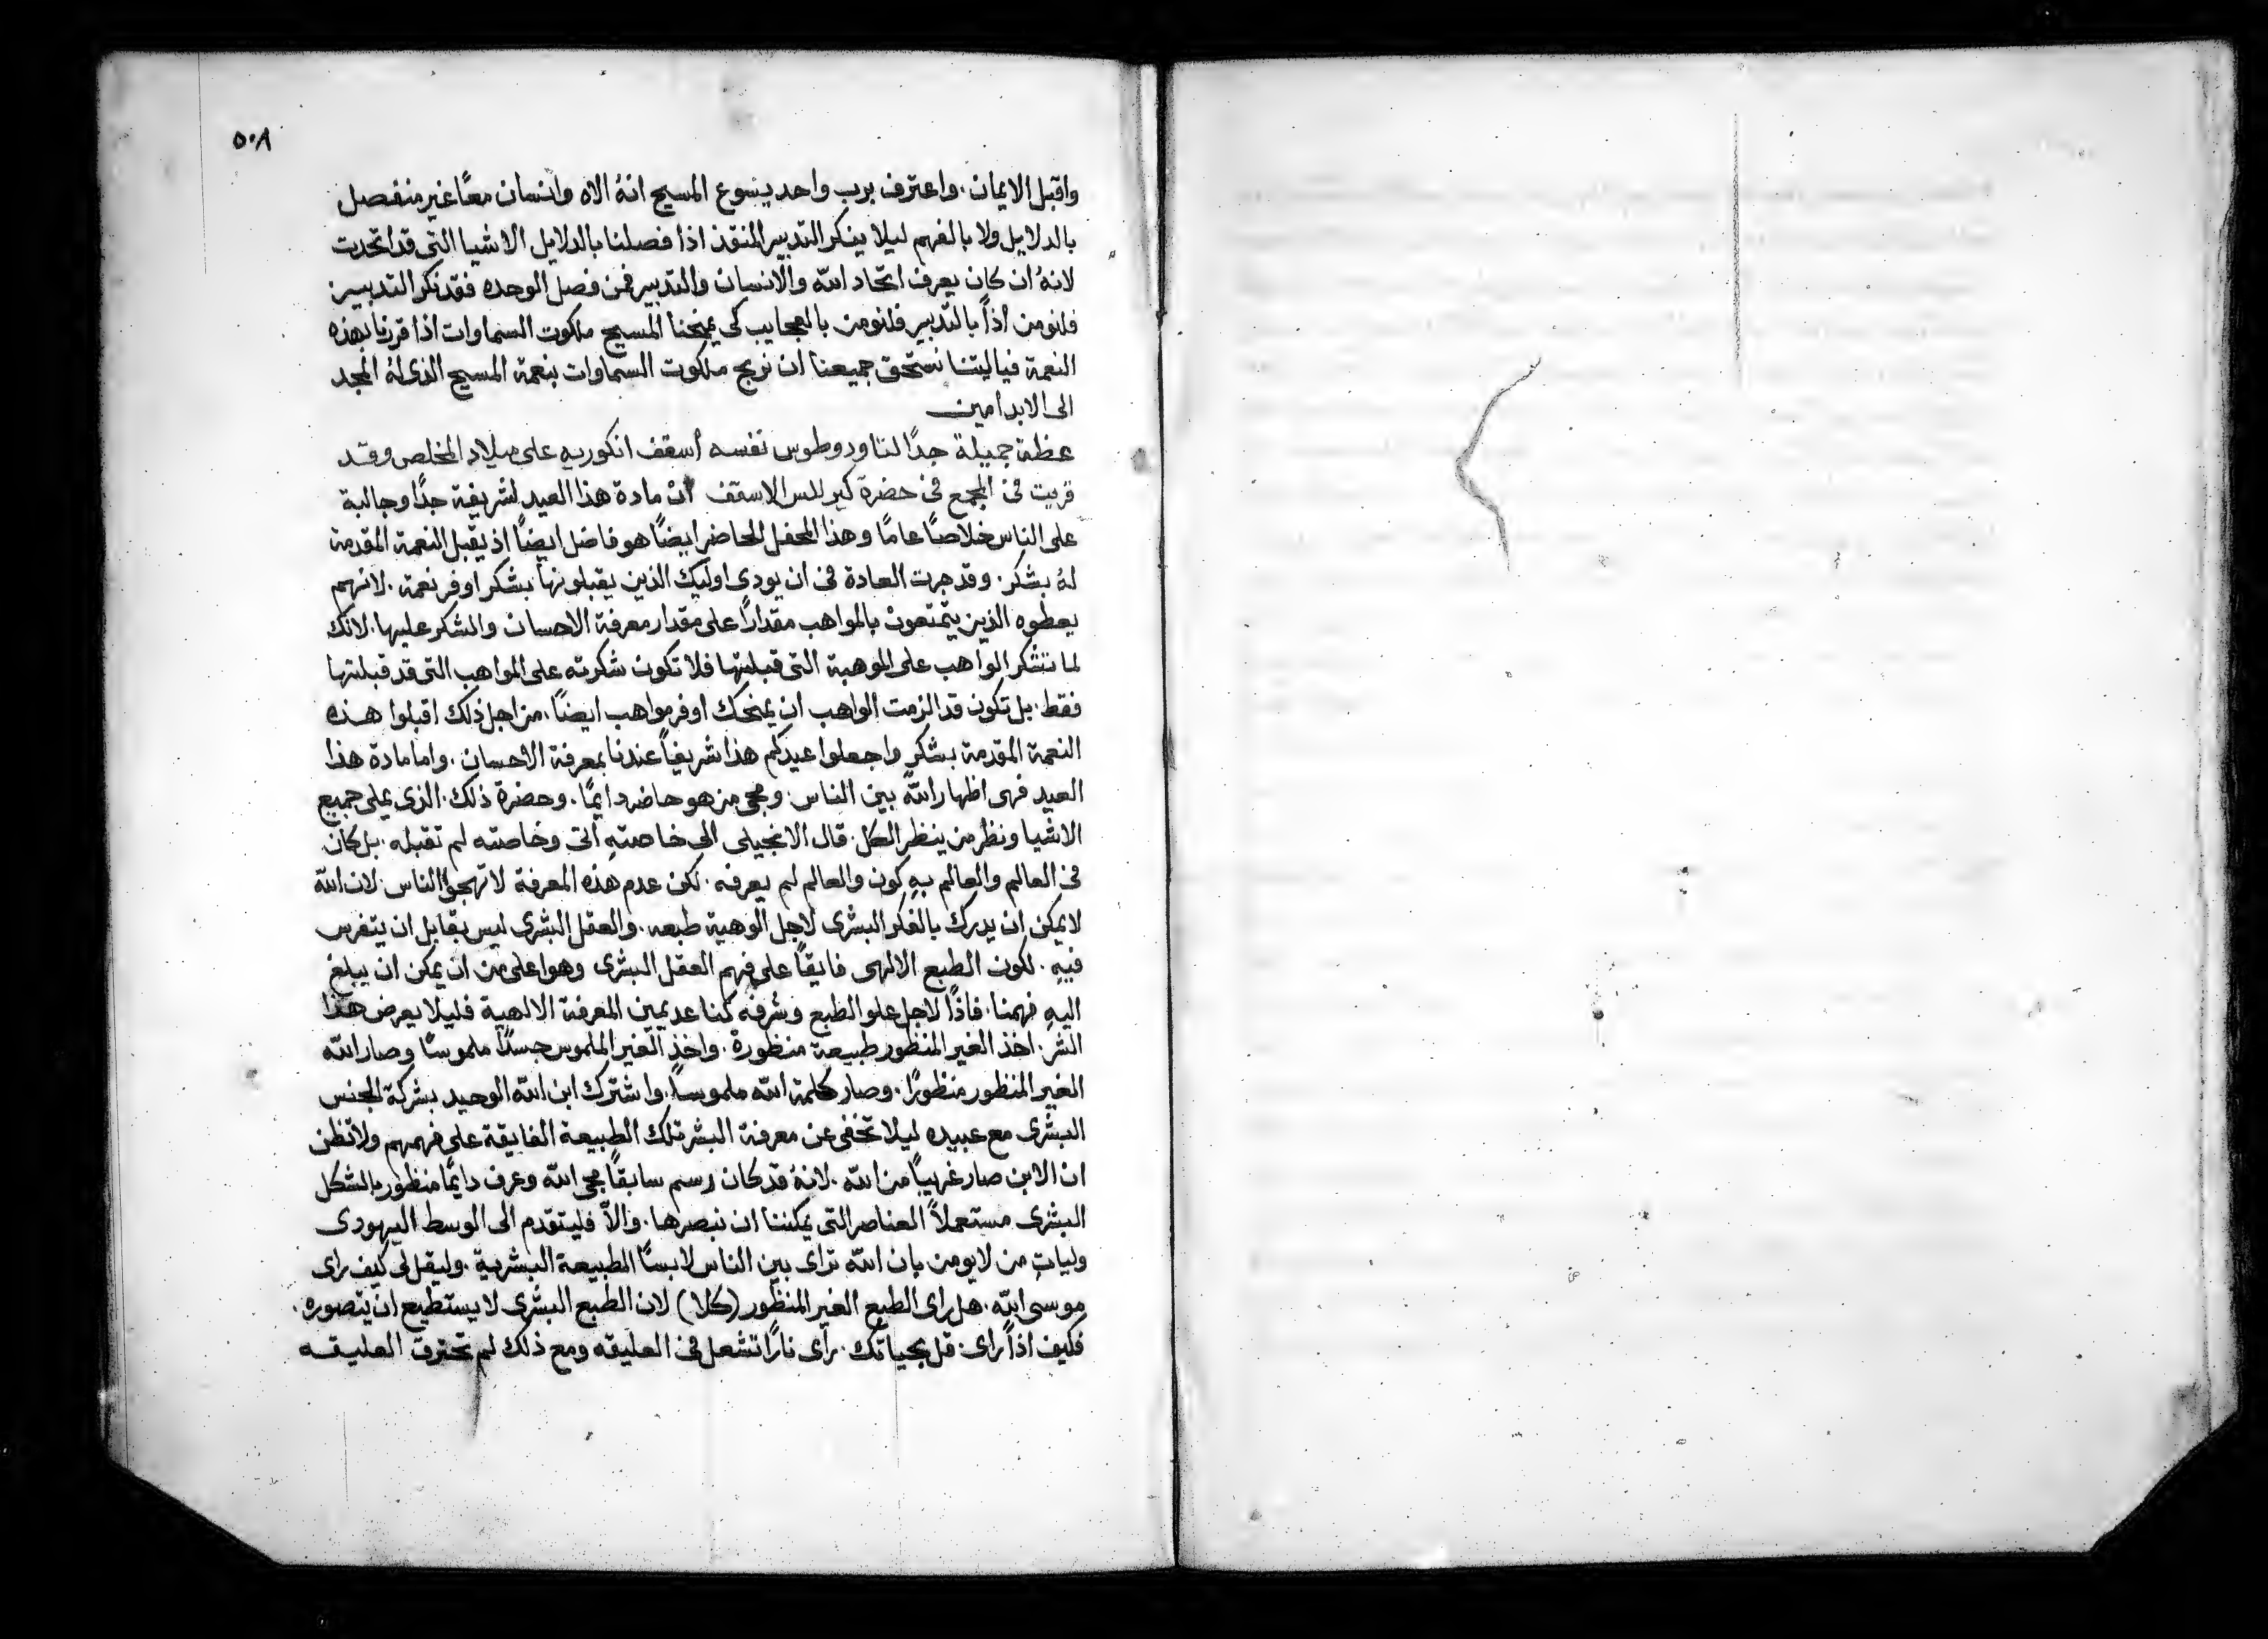 ٥٠٨
واقبل الايمان. واعترف برب واحد يسوع المسيح انهُ الاه وانسان معًا غير منفصل
بالدلايل ولا بالفهم ليلا ينكر التدبير المنقذ اذا فصلنا بالدلايل الاشيا التى قد اتحدت
لانهُ ان كان يعرف اتحاد الله والانسان والتدبير فمن فصل الوحده فقد نكر التدبير
فلنومن اذاً بالتدبير فلنومن بالعجايب كى يمنحنا المسيح ملكوت السماوات اذا قررنا بهذه
النعمة فياليتنا نستحق جميعنا ان نربح ملكوت السماوات بنعمة المسيح الذى لهُ المجد
الى الابد امين
عظة جميلة جدًا لتاودوطوس نفسه أسقف انكوريه على ميلاد المخلص وقد
قريت فى المجمع فى حضرة كيرللس الاسقف ان مادة هذا العيد لشريفة جدًا وجالبة
على الناس خلاصًا عامًا وهذا المحفل الحاضر ايضًا هو فاضل ايضًا اذ يقبل النعمة المقدمة
لهُ بشكر. وقد جرت العادة فى ان يودى اوليك الذين يقبلونها بشكر اوفر نعمة. لانهم
يعطوه الذين يتمتعون بالمواهب مقدارًا على مقدار معرفة الاحسان والشكر عليها. لانك
لما تشكر الواهب على الموهبة التى قبلتها فلا تكون شكرته على المواهب التى قد قبلتها
فقط. بل تكون قد الزمت الواهب ان يمنحك اوفر مواهب ايضًا. من اجل ذلك اقبلوا هذه
النعمة المقدمة بشكر واجعلوا عيدكم هذا شريفاً عندنا بمعرفة الاحسان. واما مادة هذا
العيد فهى اظهار الله بين الناس. ومجى من هو حاضر دايمًا. وحضرة ذلك. الذى يملى جميع
الاشيا ونظر من ينظر الكل. قال الانجيلى الى خاصتهِ أتى وخاصته لم تقبله. بل كان
فى العالم والعالم بهِ كون والعالم لم يعرفه. لكن عدم هذه المعرفة لا تهجوا الناس. لان الله
لا يمكن ان يدرك بالفكر البشرى لاجل ألوهية طبعه. والعقل البشرى ليس بقابل ان يتفرس
فيهِ. لكون الطبع الالهى فايقاً على فهم العقل البشرى وهو اعلى من ان يمكن ان يبلغ
اليهِ فهمنا. فاذًا لاجل علو الطبع وشرفه كنا عديمين المعرفة الالهية فليلا يعرض هذا
الشر. اخذ الغير المنظور طبيعة منظورة. واخذ الغير الملموس جسدًا ملموسًا وصار الله
الغير المنظور منظورًا. وصار كلمة الله ملموسًا. واشترك ابن الله الوحيد بشركة الجنس
البشرى مع عبيده ليلا تخفى عن معرفة البشر تلك الطبيعة الفايقة على فهمهم ولا تظن
ان الابن صار غريبًا من الله. لانهُ قد كان رسم سابقًا مجى الله وعرف دايمًا منظور بالشكل
البشرى مستعملاً العناصر التى يمكننا ان نبصرها. والاّ فليتقدم الى الوسط اليهودى
وليات من لا يومن بان الله تراى بين الناس لابسًا الطبيعة البشرية. وليقل لى كيف راى
موسى الله. هل راى الطبع الغير المنظور (كلا) لان الطبع البشرى لا يستطيع ان يتصوره.
فكيف اذاً راى. قل بحياتك. رأى نارًا تشعل فى العليقه ومع ذلك لم تحترق العليقه